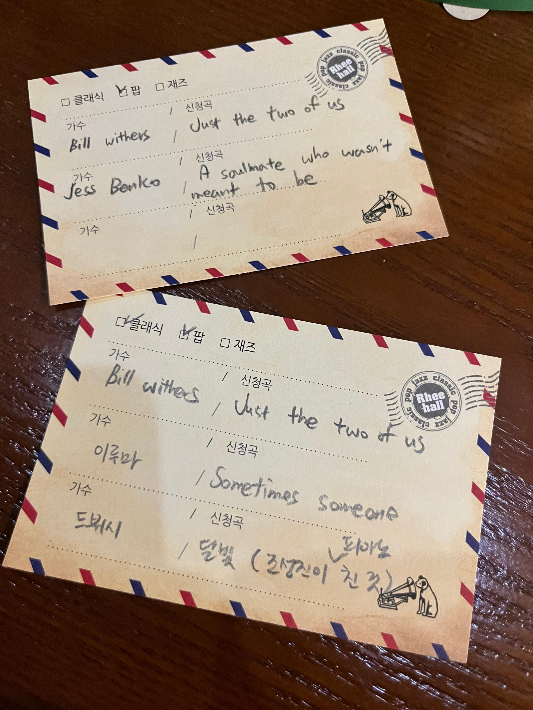 □ 클래식 ☑ 팝 □ 재즈
pop jazz classic pop jazz classic
Rhee
hall
가수 / 신청곡
Bill withers / Just the two of us
가수 / 신청곡
Jess Benko / A soulmate who wasn't
meant to be
가수 / 신청곡
☑ 클래식 ☑ 팝 □ 재즈
pop jazz classic pop jazz classic
Rhee
hall
가수 / 신청곡
Bill withers / Just the two of us
가수 / 신청곡
이루마 / Sometimes someone
가수 / 신청곡
드뷔시 / 달빛 (조성진이 피아노 친 것)